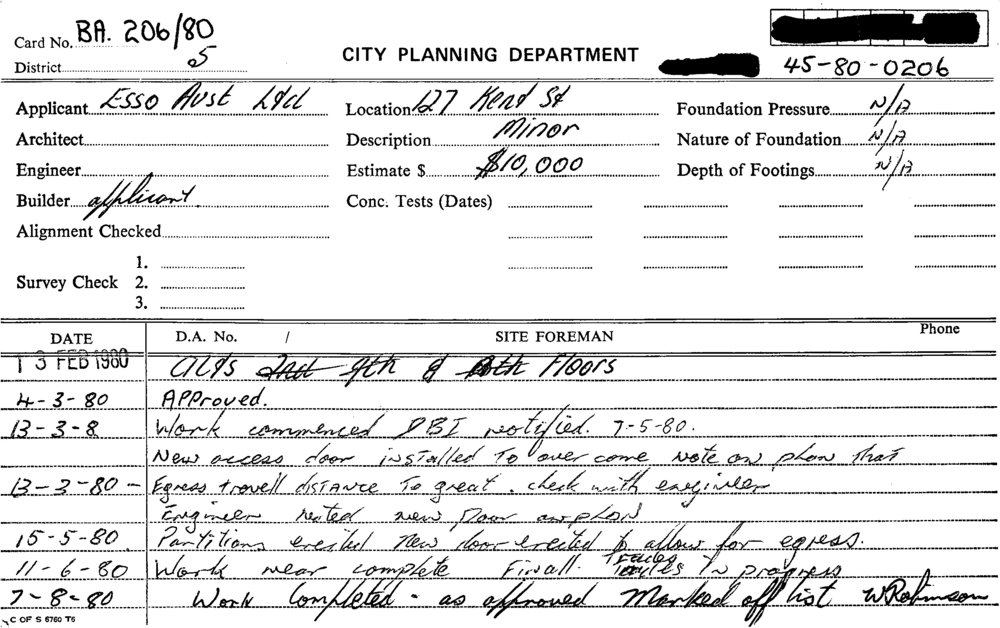 Card No. BA. 206/80
District 5
CITY PLANNING DEPARTMENT
45-80-0206
Applicant Esso Aust Ltd
Location 127 Kent St
Foundation Pressure N/A
Architect
Description Minor
Nature of Foundation N/A
Engineer
Estimate $ $10,000
Depth of Footings N/A
Builder applicant.
Conc. Tests (Dates)
Alignment Checked
Survey Check 1. 2. 3.
DATE D.A. No. / SITE FOREMAN Phone
13 FEB 1980 Alts 9th & Floors
4-3-80 Approved.
13-3-8 Work commenced DBI notified. 7-5-80.
New access door installed To over come note on plan that
13-3-80 - Egress travell distance To great. check with engineer
Engineer noted new door on plan
15-5-80. Partitions erected new door erected to allow for egress.
11-6-80 Work near complete Finall Trades in progress
7-8-80 Work Completed - as approved Marked off list W Robinson
C OF S 6760 T6